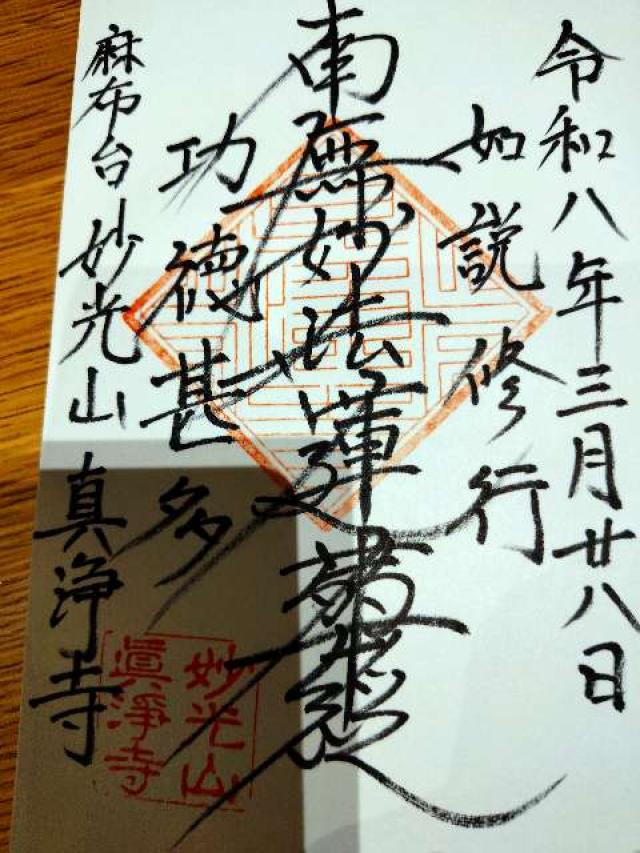 令和八年三月廿八日
如説修行
南無妙法蓮華経
功徳甚多
麻布台 妙光山 真浄寺
妙光山
眞淨寺